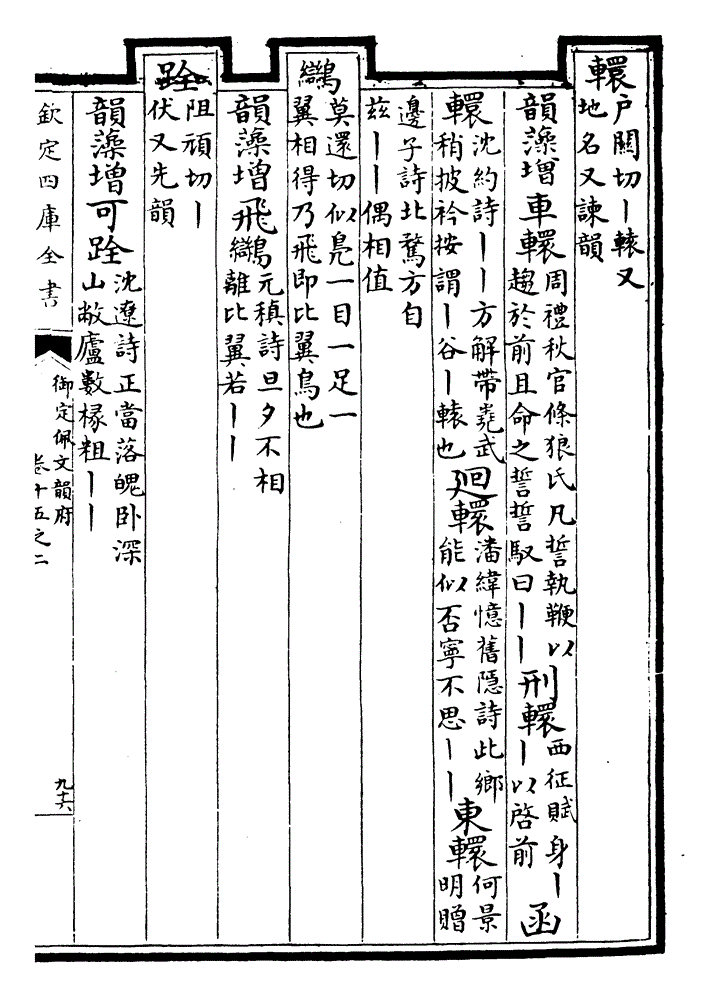 轘
户關切｜轅又
地名又諫韻
韻藻增車轘
周禮秋官條狼氏凡誓執鞭以
趨於前且命之誓誓馭曰｜｜
刑轘
西征賦身｜
｜以啓前
函
轘
沈約詩｜｜方解帶嶤武
稍披衿按謂｜谷｜轅也
廻轘
潘緯憶舊隱詩此鄉
能似否寧不思｜｜
東轘
何景
明贈
邊子詩北騖方自
兹｜｜偶相值
莫還切似鳬一目一足一
翼相得乃飛即比翼鳥也
韻藻增飛
元稹詩旦夕不相
離比翼若｜｜
跧
阻頑切｜
伏又先韻
韻藻增可跧
沈遼詩正當落魄卧深
山敝廬數椽粗｜｜
欽定四庫全書
御定佩文韻府
卷十五之二
九六